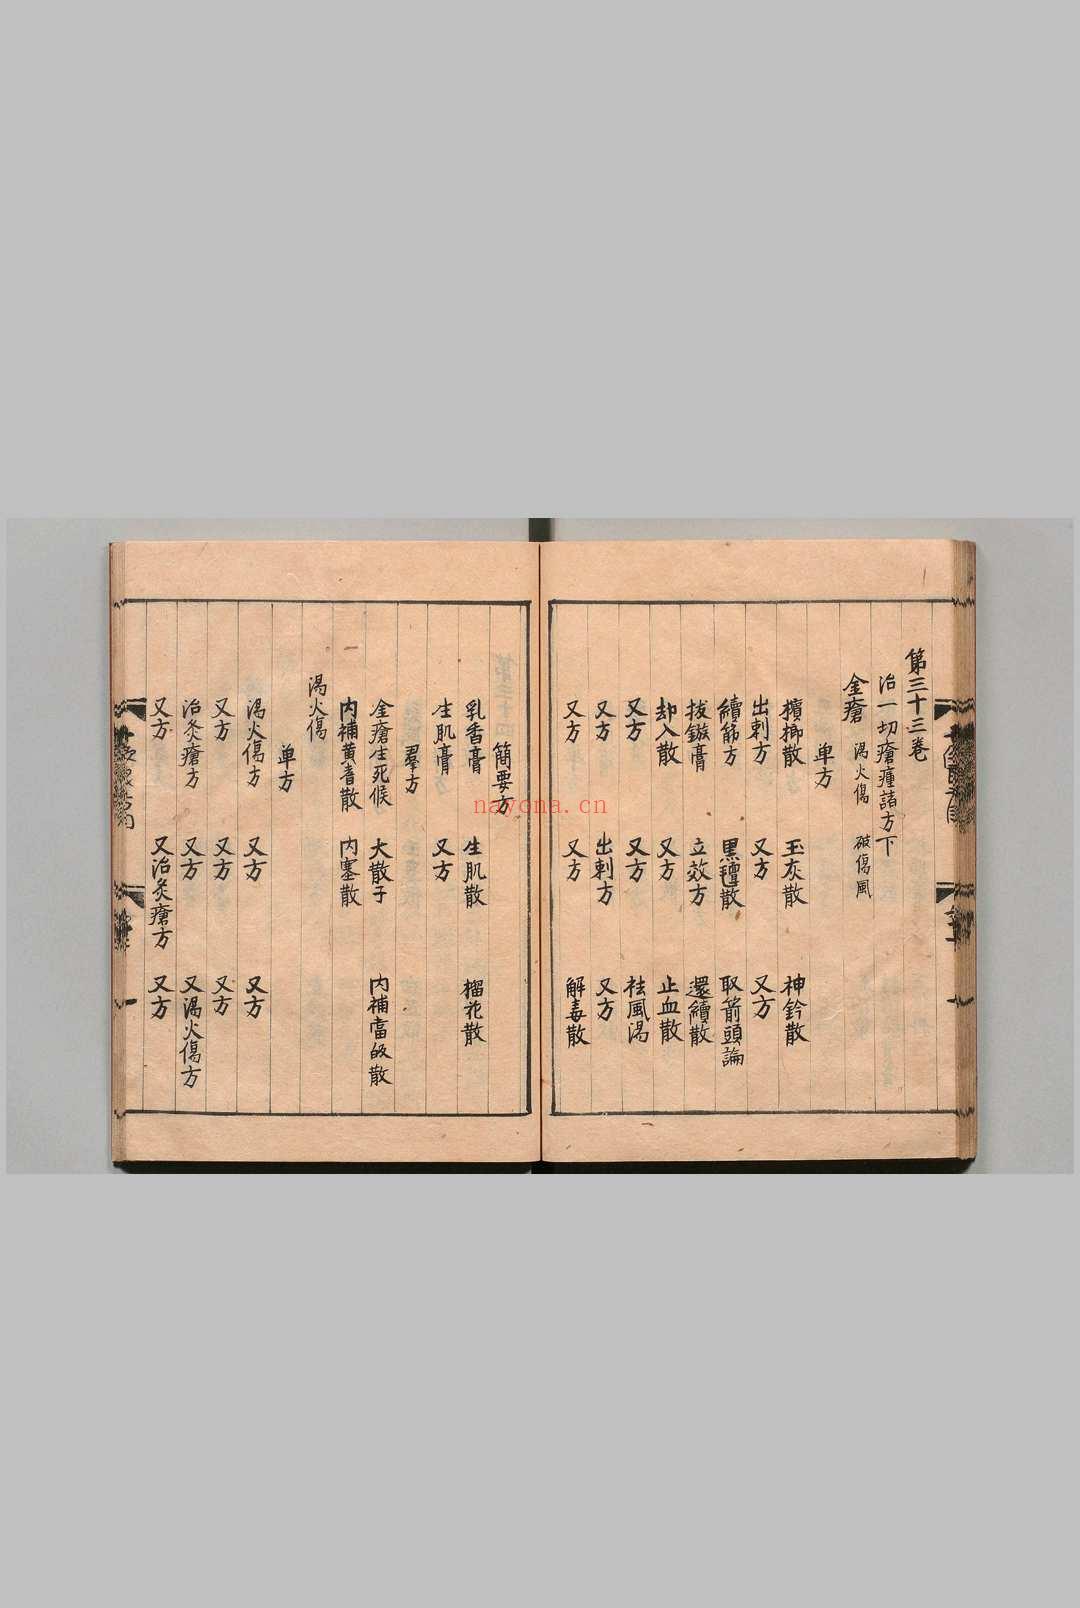 第三十三卷
治一切瘡瘇諸方下
金瘡 湯火傷 破傷風
单方
檳榔散 玉灰散 神鈐散
出刺方 又方 又方
續筋方 黑氊散 取箭頭論
拔鏃膏 立效方 還續散
却入散 又方 止血散
又方 又方 祛風湯
又方 出刺方 又方
又方 又方 解毒散
簡要方
乳香膏 生肌散 榴花散
生肌膏 又方
羣方
金瘡生死候 大散子 内補當皈散
内補黄耆散 内塞散
湯火傷
单方
湯火傷方 又方 又方
又方 又方 又方
治灸瘡方 又方 又湯火傷方
又方 又治灸瘡方 又方
nayona.cn